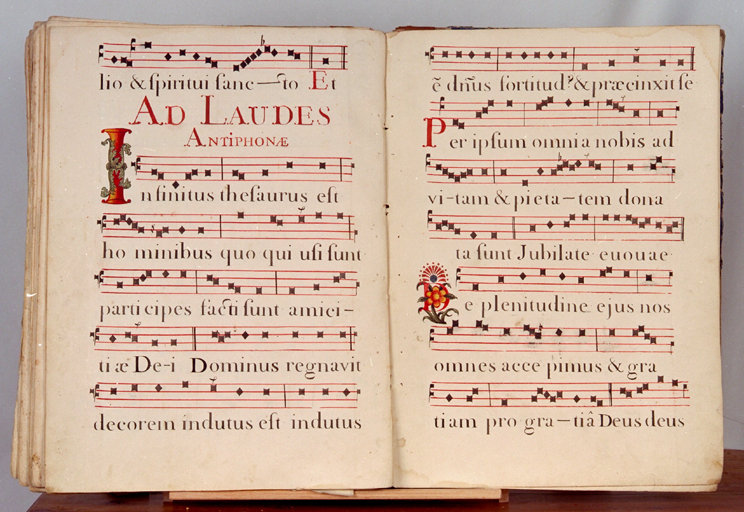 lio & spiritui sanc-to Et
AD LAUDES
ANTIPHONÆ
Infinitus thesaurus est
ho minibus quo qui usi sunt
parti cipes facti sunt amici-
ti æ De-i Dominus regnavit
decorem indutus est indutus
ē dñus fortitud. & præcinxit se
Per ipsum omnia nobis ad
vi-tam & pieta-tem dona
ta sunt Jubilate euouae
De plenitudine ejus nos
omnes acce pimus & gra
tiam pro gra-tiâ Deus deus